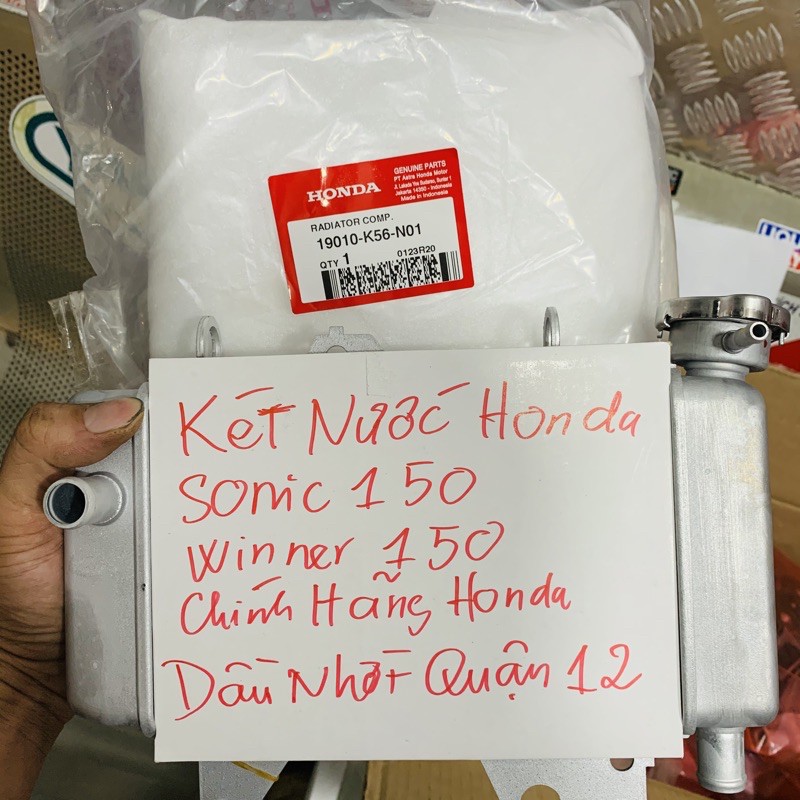 HONDA
GENUINE PARTS
PT Astra Honda Motor
Jl. Laksda Yos Sudarso, Sunter 1
Jakarta 14350 - Indonesia
Made in Indonesia
RADIATOR COMP.
19010-K56-N01
QTY 1 0123R20
Két Nước Honda
Sonic 150
Winner 150
Chính Hãng Honda
Dầu Nhớt Quận 12